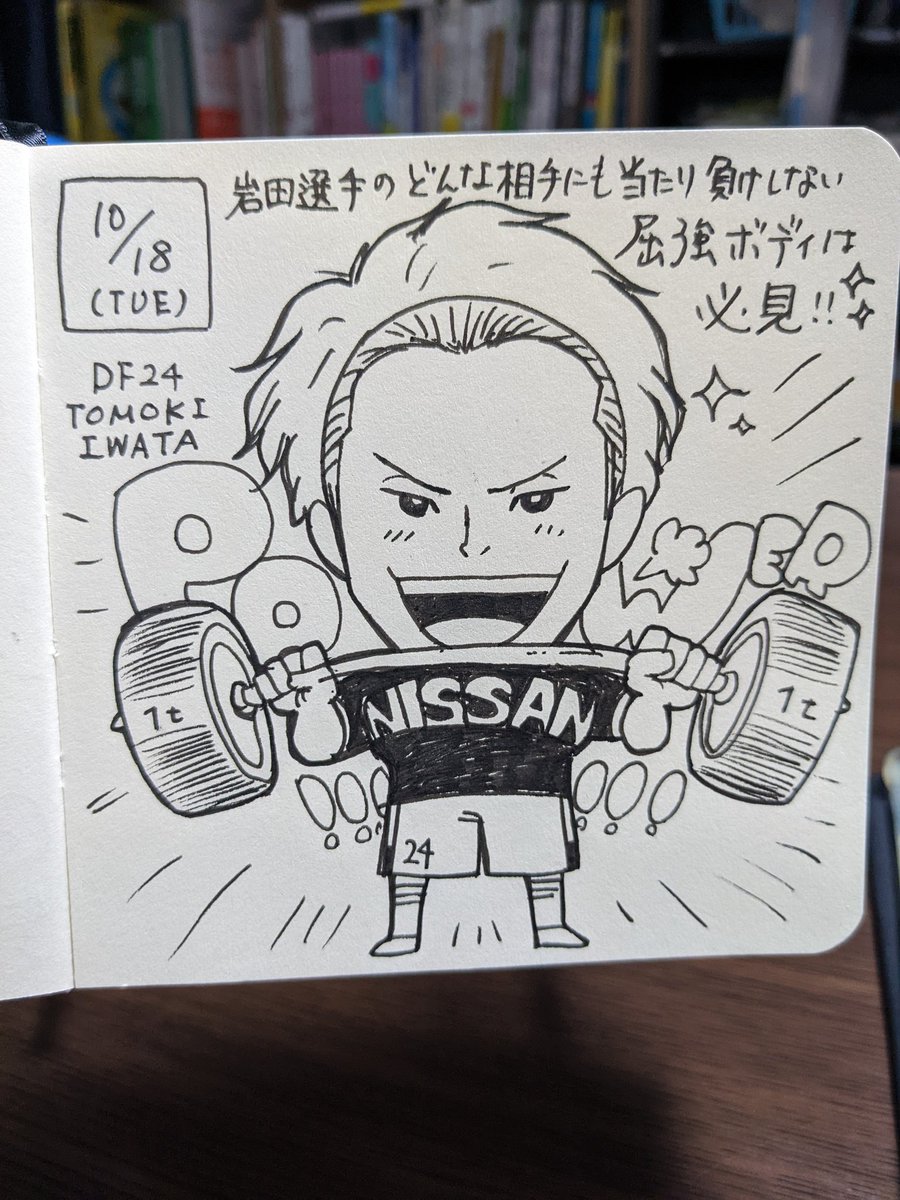 10/18
(TUE)
岩田選手のどんな相手にも当たり負けしない
屈強ボディは
必見!!
DF24
TOMOKI
IWATA
1t
NISSAN
1t
24